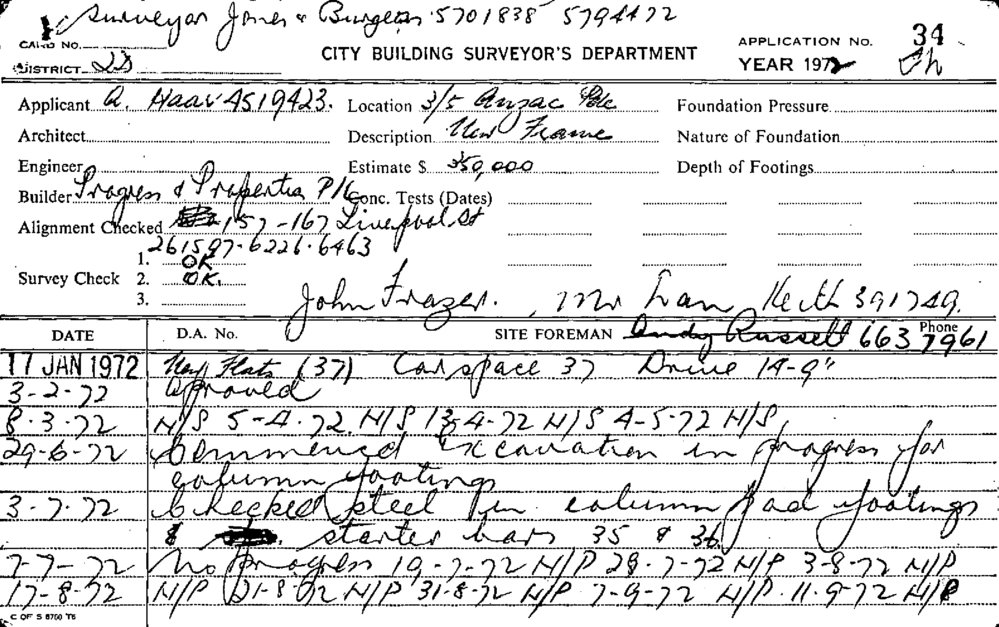 Surveyor Jones & Burgess 5701838 5794472
CARD NO.
DISTRICT 2D
CITY BUILDING SURVEYOR'S DEPARTMENT
APPLICATION No. 34
YEAR 1972
Applicant A. Haar 4519423. Location 3/5 Anzac Pde Foundation Pressure
Architect Description New Frame Nature of Foundation
Engineer Estimate $ 350,000 Depth of Footings
Builder Progress & Properties P/L Conc. Tests (Dates)
Alignment Checked 157-167 Liverpool St
261597-6226-6463
1. OK
Survey Check 2. OK.
3.
John Frazer. , Mr Ian Keith 391749.
DATE D.A. No. SITE FOREMAN Andy Russell Phone 663 7961
17 JAN 1972 New Flats (37) Carspace 37 Drive 14-9"
3-2-72 approved
8.3.72 N/S 5-4.72 N/S 13-4-72 N/S 4-5-72 N/S,
29-6-72 Commenced Excavation in progress for
column footings
3-7-72 Checked steel in column pad footings
& starter bars 35 & 36
7-7-72 No progress 19-7-72 N/P 28-7-72 N/P 3-8-72 N/P
17-8-72 N/P 21-8-72 N/P 31-8-72 N/P 7-9-72 N/P 11-9-72 N/P
C OF S 8700 T6